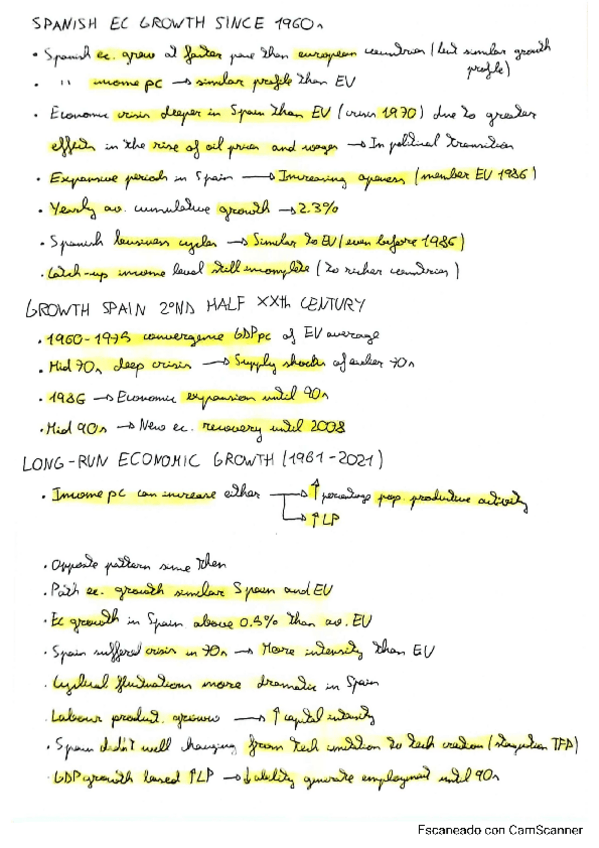 SPANISH EC GROWTH SINCE 1960s
• Spanish ec. grew at faster pace than european countries (but similar growth
profile)
• " income pc → similar profile than EU
• Economic crisis deeper in Spain than EU (crisis 1970) due to greater
effects in the rise of oil prices and wages → In political transition
• Expansive periods in Spain → Increasing openess (member EU 1986)
• Yearly av. cumulative growth → 2.3%
• Spanish bussiness cycles → Similar to EU (even before 1986)
• Catch-up income level still incomplete (to richer countries)
GROWTH SPAIN 2ND HALF XXth CENTURY
• 1960-1975 convergence GDPpc of EU average
• Mid 70s deep crisis → Supply shocks of earlier 70s
• 1986 → Economic expansion until 90s
• Mid 90s → New ec. recovery until 2008
LONG-RUN ECONOMIC GROWTH (1961-2021)
• Income pc can increase either → ↑ percentage pop. productive activity
→ ↑ LP
• Opposite pattern since then
• Path ec. growth similar Spain and EU
• Ec growth in Spain above 0.5% than av. EU
• Spain suffered crisis in 70s → More intensity than EU
• Cyclical fluctuations more dramatic in Spain
• Labour product. growow → ↑ capital intensity
• Spain didn't well changing from tech imitation to tech creation (stagnation TFP)
• GDP growth based ↑LP → ↓ ability generate employment until 90s
Escaneado con CamScanner